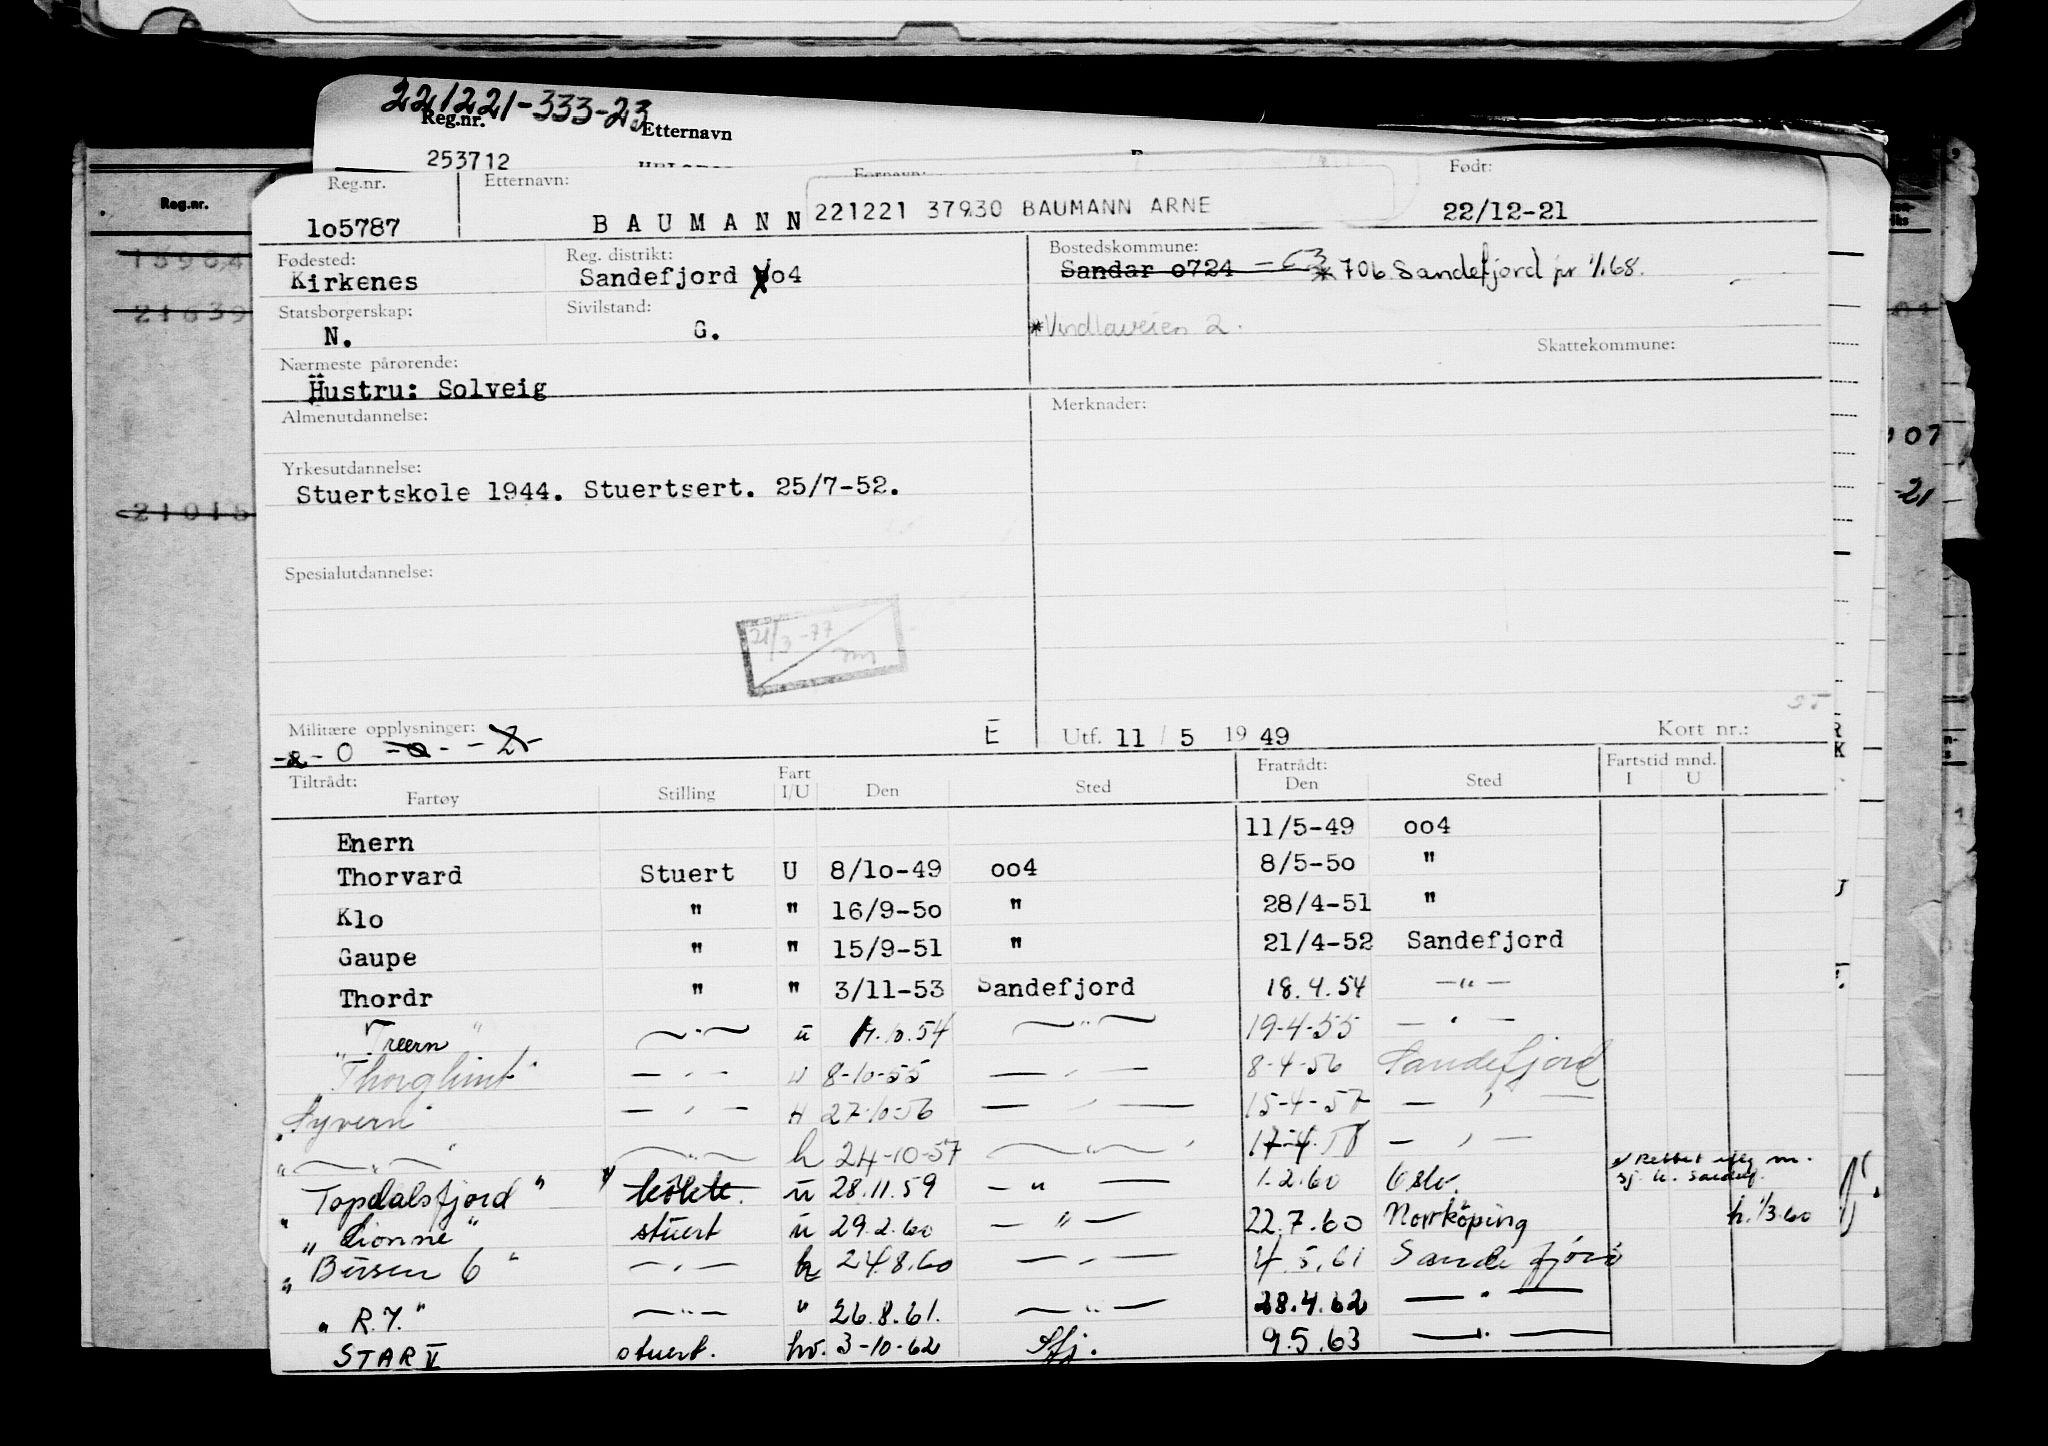 221221-333-23
Reg.nr. Etternavn
253712
Reg.nr. Reg.nr. Etternavn: Født:
1o5787 B A U M A N N 221221 37930 BAUMANN ARNE 22/12-21
Fødested: Reg. distrikt: Bostedskommune:
Kirkenes Sandefjord oo4 Sandar o724 - 63 * 706 Sandefjord pr 1/1.68.
Statsborgerskap: Sivilstand:
N. G. *Vindlaveien 2.
Nærmeste pårørende: Skattekommune:
Hustru: Solveig
Almenutdannelse: Merknader:
Yrkesutdannelse:
Stuertskole 1944. Stuertsert. 25/7-52.
Spesialutdannelse:
21/3-77
Militære opplysninger: E Utf. 11 / 5 19 49 Kort nr.:
-2- 0 -0- -2-
Tiltrådt: Fart Fratrådt: Fartstid mnd.
Fartøy Stilling I/U Den Sted Den Sted I U
Enern 11/5-49 oo4
Thorvard Stuert U 8/1o-49 oo4 8/5-5o "
Klo " " 16/9-5o " 28/4-51 "
Gaupe " " 15/9-51 " 21/4-52 Sandefjord
Thordr " " 3/11-53 Sandefjord 18.4.54 —"—
"Treern" —"— u 7.10.54 —"— 19-4-55 —"—
Thorglimt —"— u 8-10-55 —"— 8-4-56 Sandefjord
"Syvern —"— H 27-10-56 —"— 15-4-57 —"—
" —"— " —"— h 24-10-57 —"— 17-4-58 —"—
"Topdalsfjord" u 28.11.59 —"— 1.2.60 Oslo.
"Lionne" stuert u 29.2.60 —"— 22.7.60 Norrköping h. 1/3.60
"Bersen 6" —"— h 24.8.60 —"— 4.5.61 Sandefjord
"R.7." —"— " 26.8.61. —"— 28.4.62 —"—
STAR V stuert. hv. 3-10-62 Sfj. 9.5.63 —"—
07
21